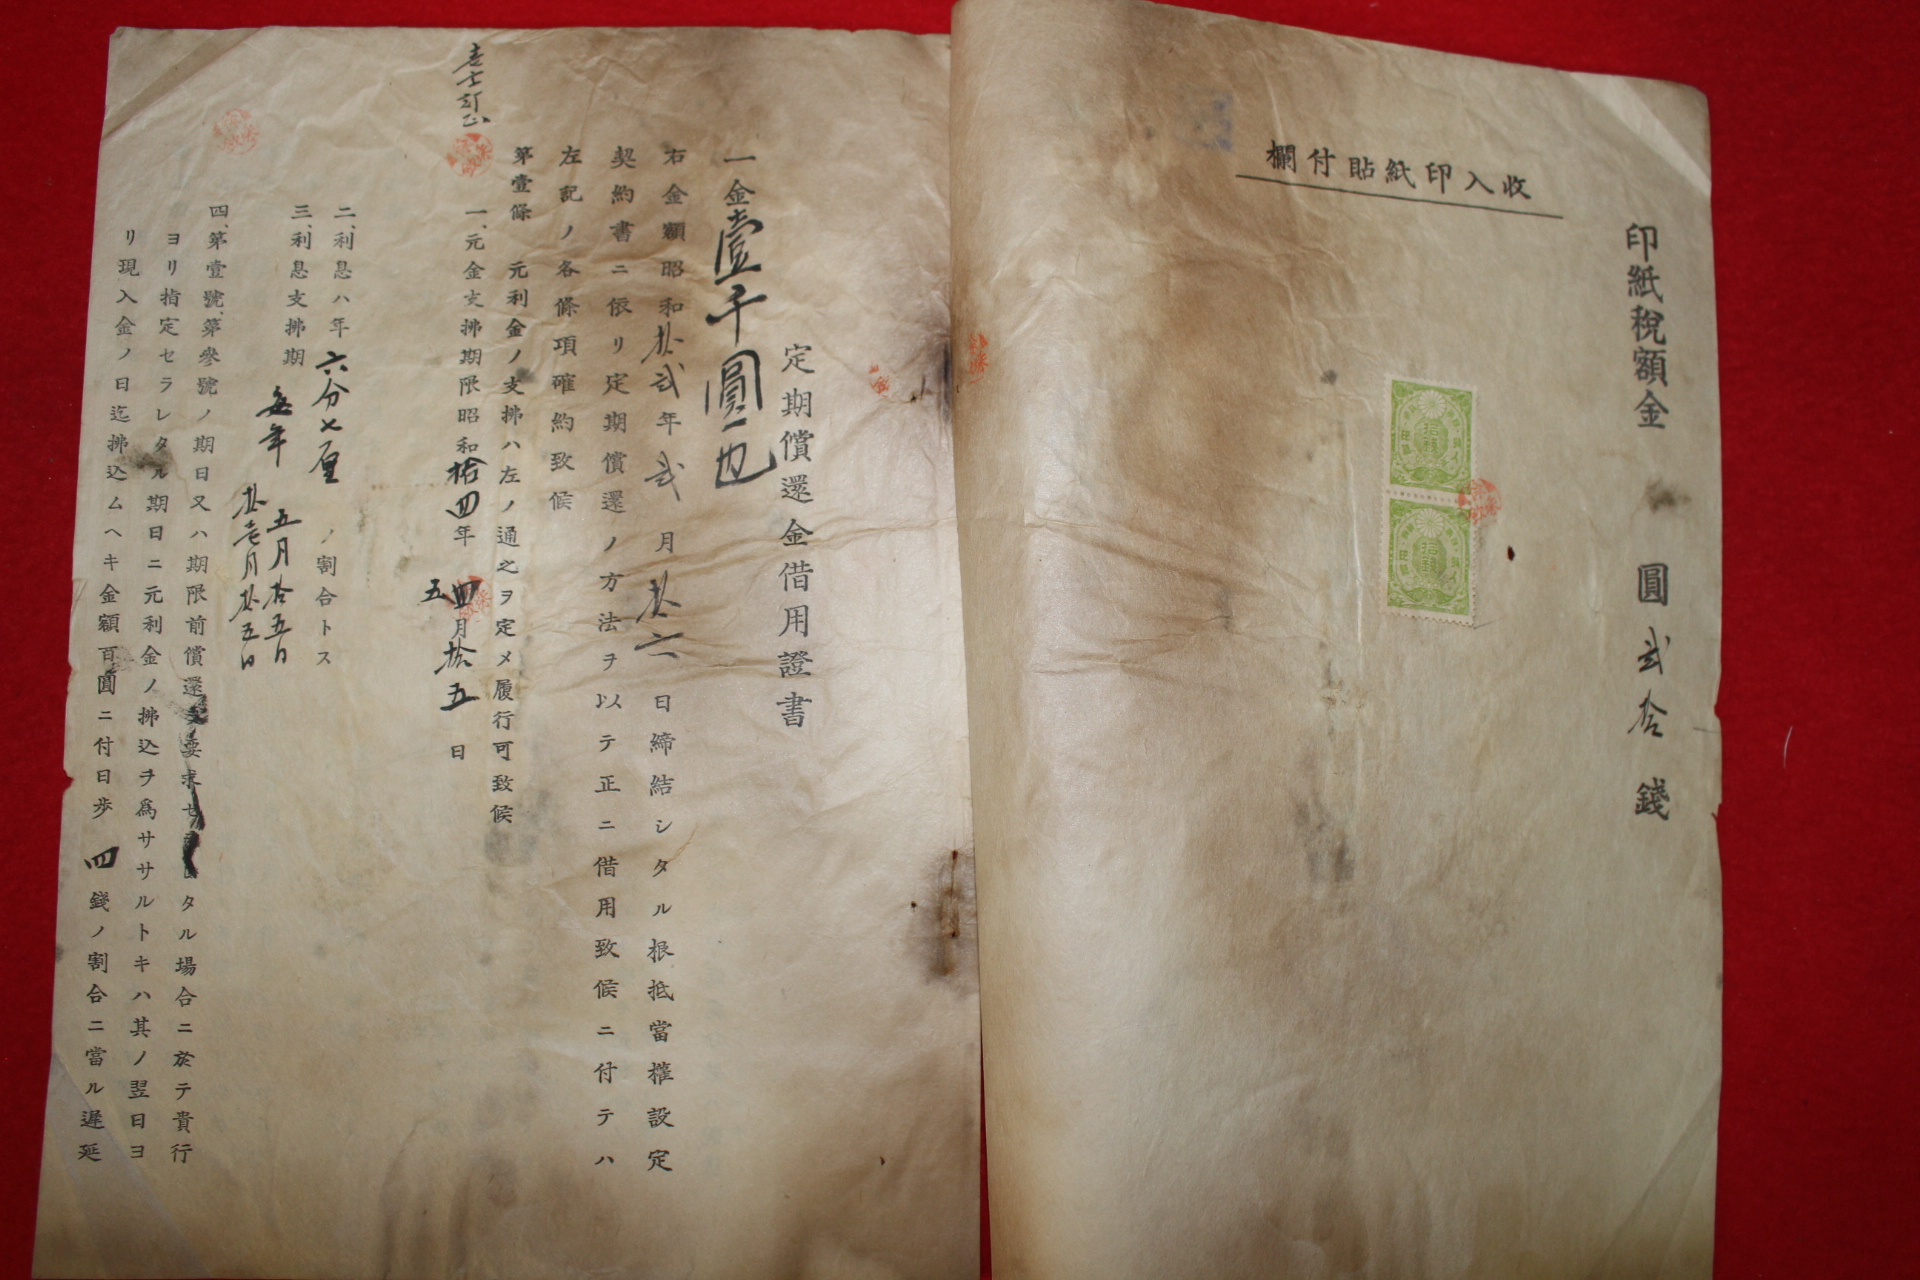 収入印紙貼付欄
印紙税額金 圓貳拾錢
拾錢
拾錢
定期償還金借用證書
一金壹千圓也
右金額昭和拾貳年貳月拾六日締結シタル根抵當權設定
契約書ニ依リ定期償還ノ方法ヲ以テ正ニ借用致候ニ付テハ
左記ノ各條項確約致候
第壹條 元利金ノ支拂ハ左ノ通之ヲ定メ履行可致候
一、元金支拂期限昭和拾四年四月拾五日
五
壱字訂正
二、利息ハ年六分七厘ノ割合トス
三、利息支拂期 毎年 五月拾五日
拾壱月拾五日
四、第壹號、第參號ノ期日又ハ期限前償還ヲ要求セラレタル場合ニ於テ貴行
ヨリ指定セラレタル期日ニ元利金ノ拂込ヲ爲ササルトキハ其ノ翌日ヨ
リ現入金ノ日迄拂込ムヘキ金額百圓ニ付日歩四錢ノ割合ニ當ル遲延